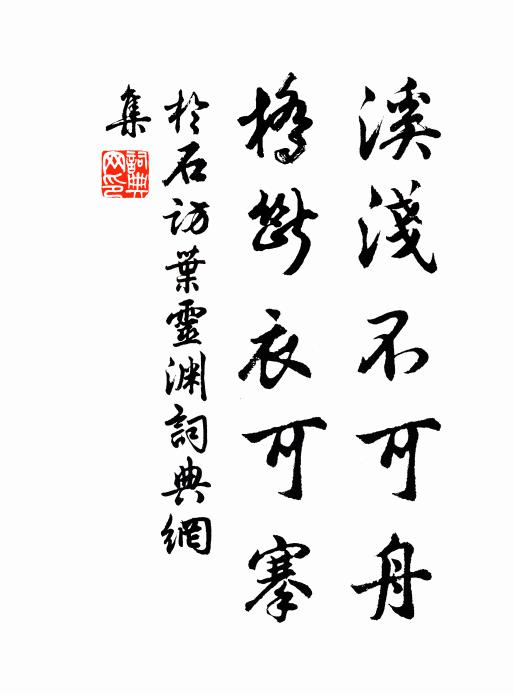 溪淺不可舟
橋斷衣可搴
於石訪葉靈淵詞典網
集
詞典
网印